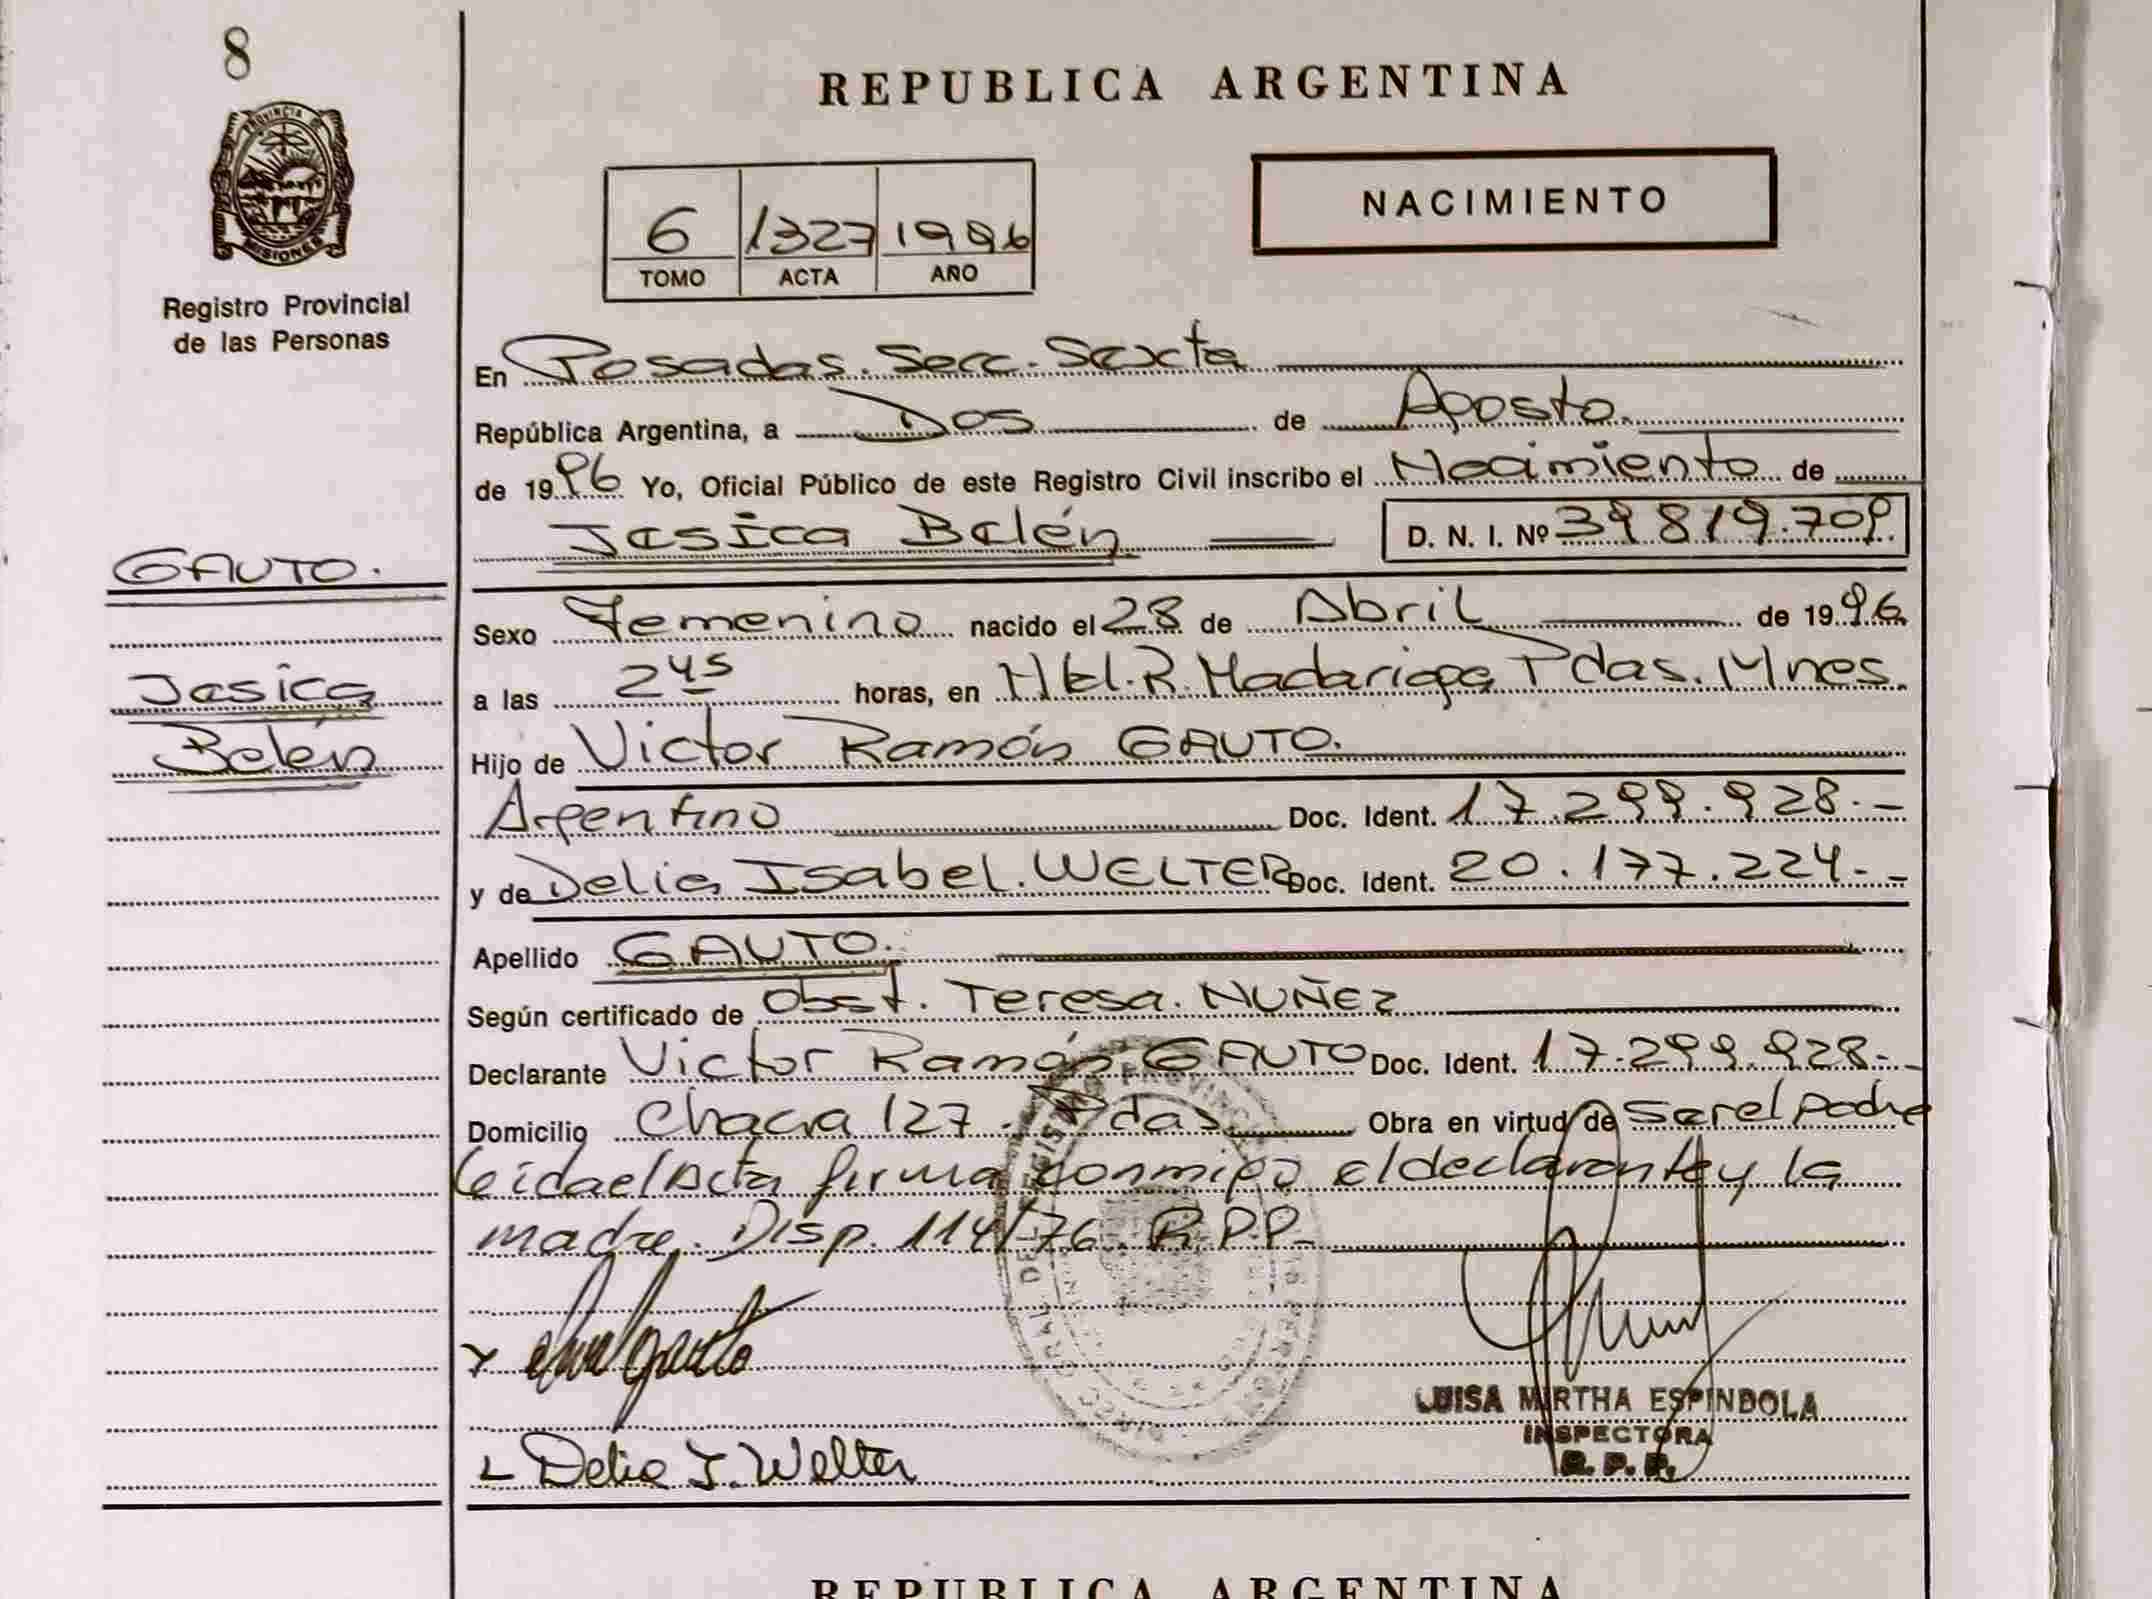 8
PROVINCIA DE
MISIONES
Registro Provincial
de las Personas
REPUBLICA ARGENTINA
6 1327 1996
TOMO ACTA AÑO
NACIMIENTO
En Posadas. Secc. Sexta
República Argentina, a Dos de Agosto.
de 1996 Yo, Oficial Público de este Registro Civil inscribo el Nacimiento de
Jesica Belén D. N. I. Nº 39.819.709.
GAUTO.
Sexo Femenino nacido el 28 de Abril de 1996.
Jesica
a las 2 45 horas, en Htal. R. Madariaga Pdas. Mnes.
Belén
Hijo de Victor Ramón GAUTO.
Argentino Doc. Ident. 17.299.928.-
y de Delia Isabel. WELTER Doc. Ident. 20.177.224.-
Apellido GAUTO.
Según certificado de Obst. Teresa. NUÑEZ
Declarante Victor Ramón GAUTO Doc. Ident. 17.299.928.-
Domicilio Chacra 127. Pdas. Obra en virtud de ser el padre
leida el Acta firma conmigo el declarante y la
madre. Disp. 114/76. R.P.P.
Gauto
LUISA MIRTHA ESPINDOLA
INSPECTORA
R. P. P.
Delia I. Welter
REPUBLICA ARGENTINA